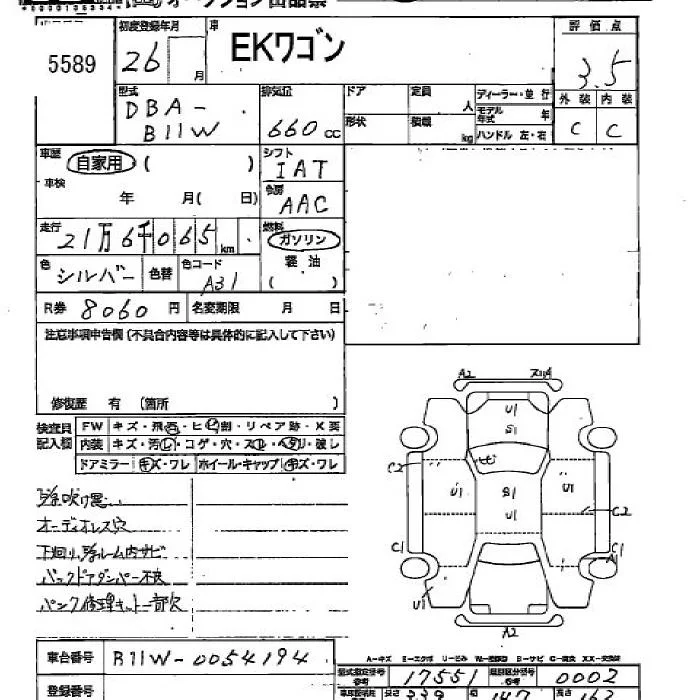 5589
初度登録年月
26
月
車
EKワゴン
評価点
3.5
外装 内装
C C
型式
DBA-
B11W
排気量
660 cc
ドア
定員
人
形状
積載
kg
ディーラー・並行
モデル年式
年
ハンドル 左・右
車歴
自家用 ( )
車検
年 月( 日)
シフト
IAT
冷房
AAC
走行
21万6千065 km
燃料
ガソリン
軽油
( )
色
シルバー
色替
色コード
A31
R券 8060 円
名変期限 月 日
注意事項申告欄(不具合内容等は具体的に記入して下さい)
修復歴 有 (箇所 )
検査員記入欄
FW キズ・飛石・ヒビ割・リペア跡・X要
内装 キズ・汚レ・コゲ・穴・スレ・ヘタリ・破レ
ドアミラー キズ・ワレ ホイール・キャップ キズ・ワレ
オーディオレス穴
下回り、
ルーム内サビ
バックドアダンパー不良
パンク修理キット一部欠
A2
U1
S1
ヒビ
C2
U1
S1
U1
U1
C2
C1
C1
A1
U1
A2
A-キズ E-エクボ U-ヘこみ W-補修跡 B-サビ C-腐食 XX-交換済
車台番号 B11W-0054194
型式指定番号
17551
類別区分番号
0002
登録番号
長さ
339
147
高さ